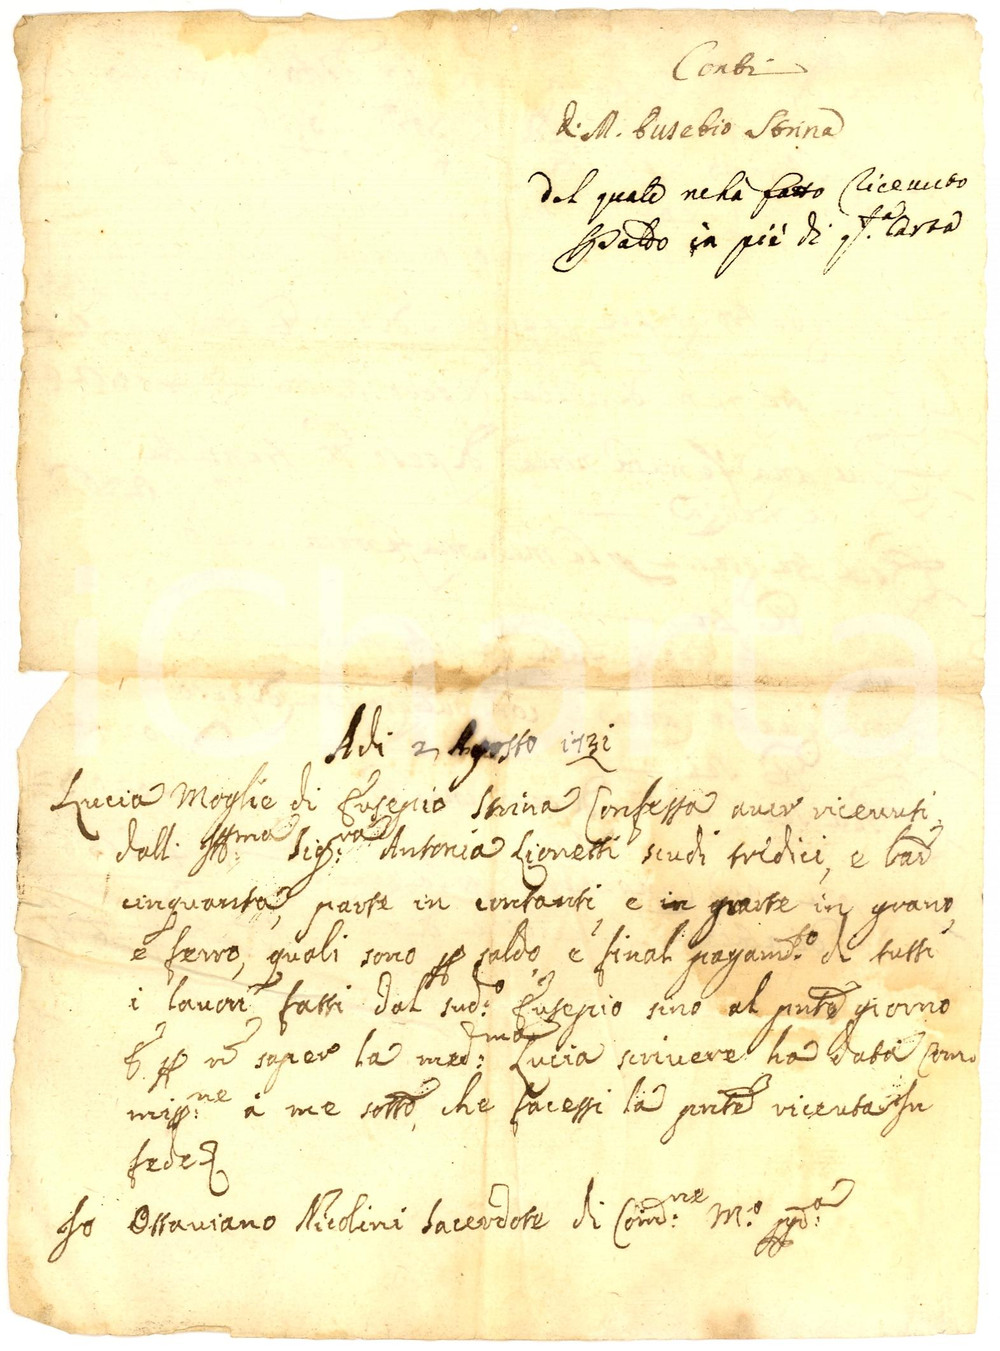 Conti
di M. Eusebio Strina
del quale ne hà fatto Riceuuto
Saldo in piè di q.sta Carta
iCharta
Adi 2 Agosto 1731
Lucia Moglie di Eusepio Strina Confessa auer riceuuti
dall. Ill:ma Sig:ra Antonia Lionetti scudi tredici, e bai
cinquanta, parte in contanti, e in parte in grano,
e ferro, quali sono p saldo, e final pagam:to di tutti
i lauori fatti dal sud:o Eusepio sino al pnte giorno
E p nò saper la med:ma Lucia scriuere ha data Com
miss:ne à me sotto, che facessi la pnte riceuta In
fede
Io Ottauiano Nicolini Sacerdote di Com:ne M:o pp:a